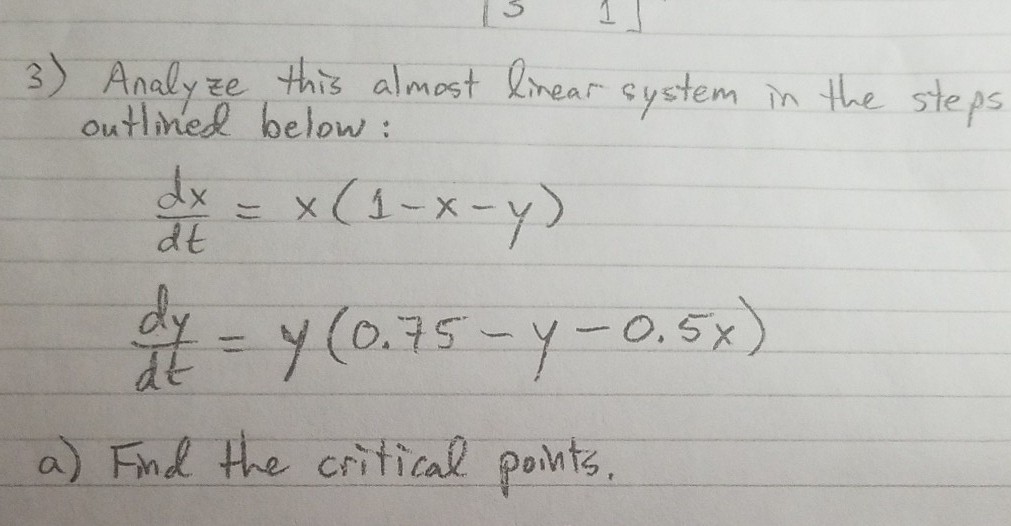 3 1]
3) Analyze this almost linear system in the steps
outlined below:
dx/dt = x(1-x-y)
dy/dt = y(0.75-y-0.5x)
a) Find the critical points.